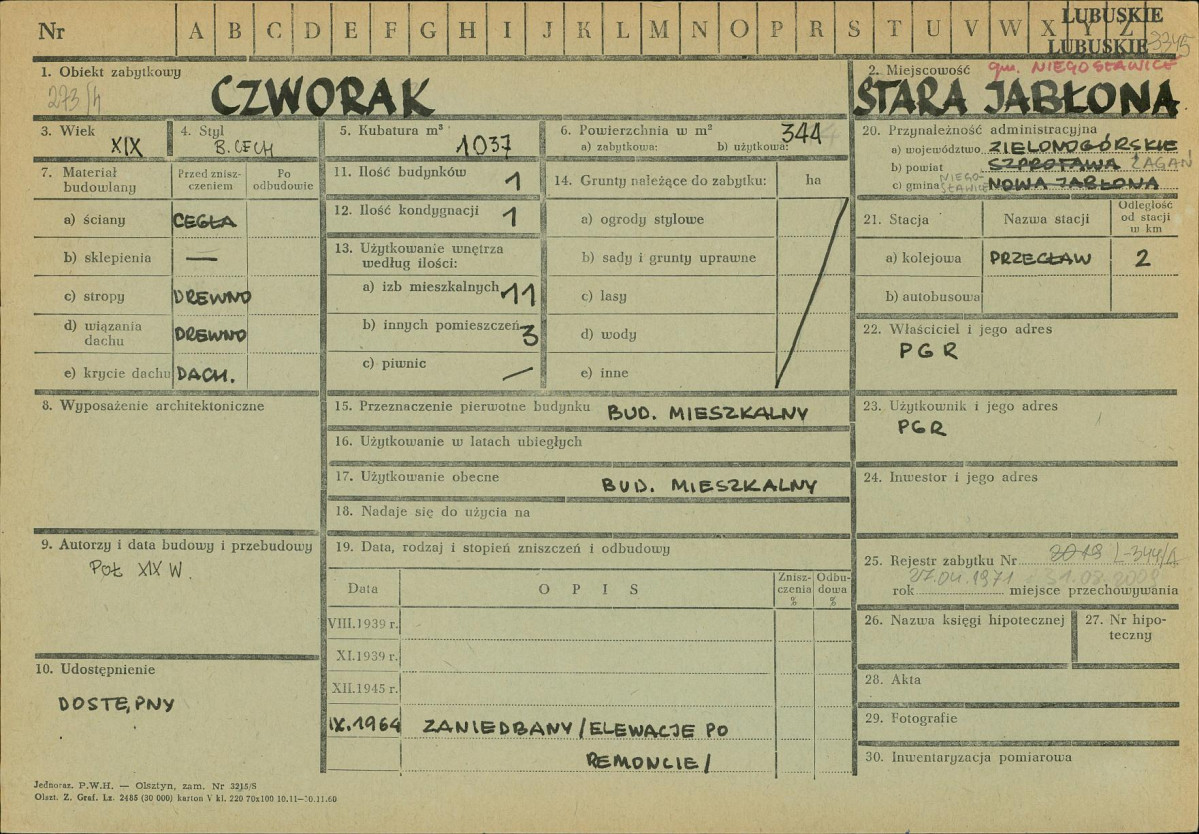 Nr A B C D E F G H I J K L M N O P R S T U V W X Y Z
LUBUSKIE
LUBUSKIE 3345
1. Obiekt zabytkowy
273/4
CZWORAK
2. Miejscowość gm. NIEGOSŁAWICE
STARA JABŁONA
3. Wiek
XIX
4. Styl
B. CECH
5. Kubatura m³
1037
6. Powierzchnia w m²
a) zabytkowa: b) użytkowa:
344
7. Materiał budowlany
Przed zniszczeniem
Po odbudowie
a) ściany CEGŁA
b) sklepienia —
c) stropy DREWNO
d) wiązania dachu DREWNO
e) krycie dachu DACH.
8. Wyposażenie architektoniczne
9. Autorzy i data budowy i przebudowy
POŁ XIX W.
10. Udostępnienie
DOSTĘPNY
11. Ilość budynków 1
12. Ilość kondygnacji 1
13. Użytkowanie wnętrza
według ilości:
a) izb mieszkalnych 11
b) innych pomieszczeń 3
c) piwnic —
14. Grunty należące do zabytku: ha
a) ogrody stylowe
b) sady i grunty uprawne
c) lasy
d) wody
e) inne
15. Przeznaczenie pierwotne budynku BUD. MIESZKALNY
16. Użytkowanie w latach ubiegłych
17. Użytkowanie obecne BUD. MIESZKALNY
18. Nadaje się do użycia na
19. Data, rodzaj i stopień zniszczeń i odbudowy
Data OPIS Zniszczenia % Odbudowa %
VIII.1939 r.
XI.1939 r.
XII.1945 r.
IX.1964 ZANIEDBANY /ELEWACJE PO
REMONCIE/
20. Przynależność administracyjna
a) województwo ZIELONOGÓRSKIE
b) powiat SZPROTAWA ŻAGAŃ
c) gmina NIEGOSŁAWICE NOWA JABŁONA
21. Stacja Nazwa stacji Odległość od stacji w km
a) kolejowa PRZECŁAW 2
b) autobusowa
22. Właściciel i jego adres
PGR
23. Użytkownik i jego adres
PGR
24. Inwestor i jego adres
25. Rejestr zabytku Nr 2013 L-344/A
27.04.1971
rok miejsce przechowywania
26. Nazwa księgi hipotecznej
27. Nr hipoteczny
28. Akta
29. Fotografie
30. Inwentaryzacja pomiarowa
Jednoraz. P.W.H. — Olsztyn, zam. Nr 3215/S
Olszt. Z. Graf. Lz. 2485 (30 000) karton V kl. 220 70x100